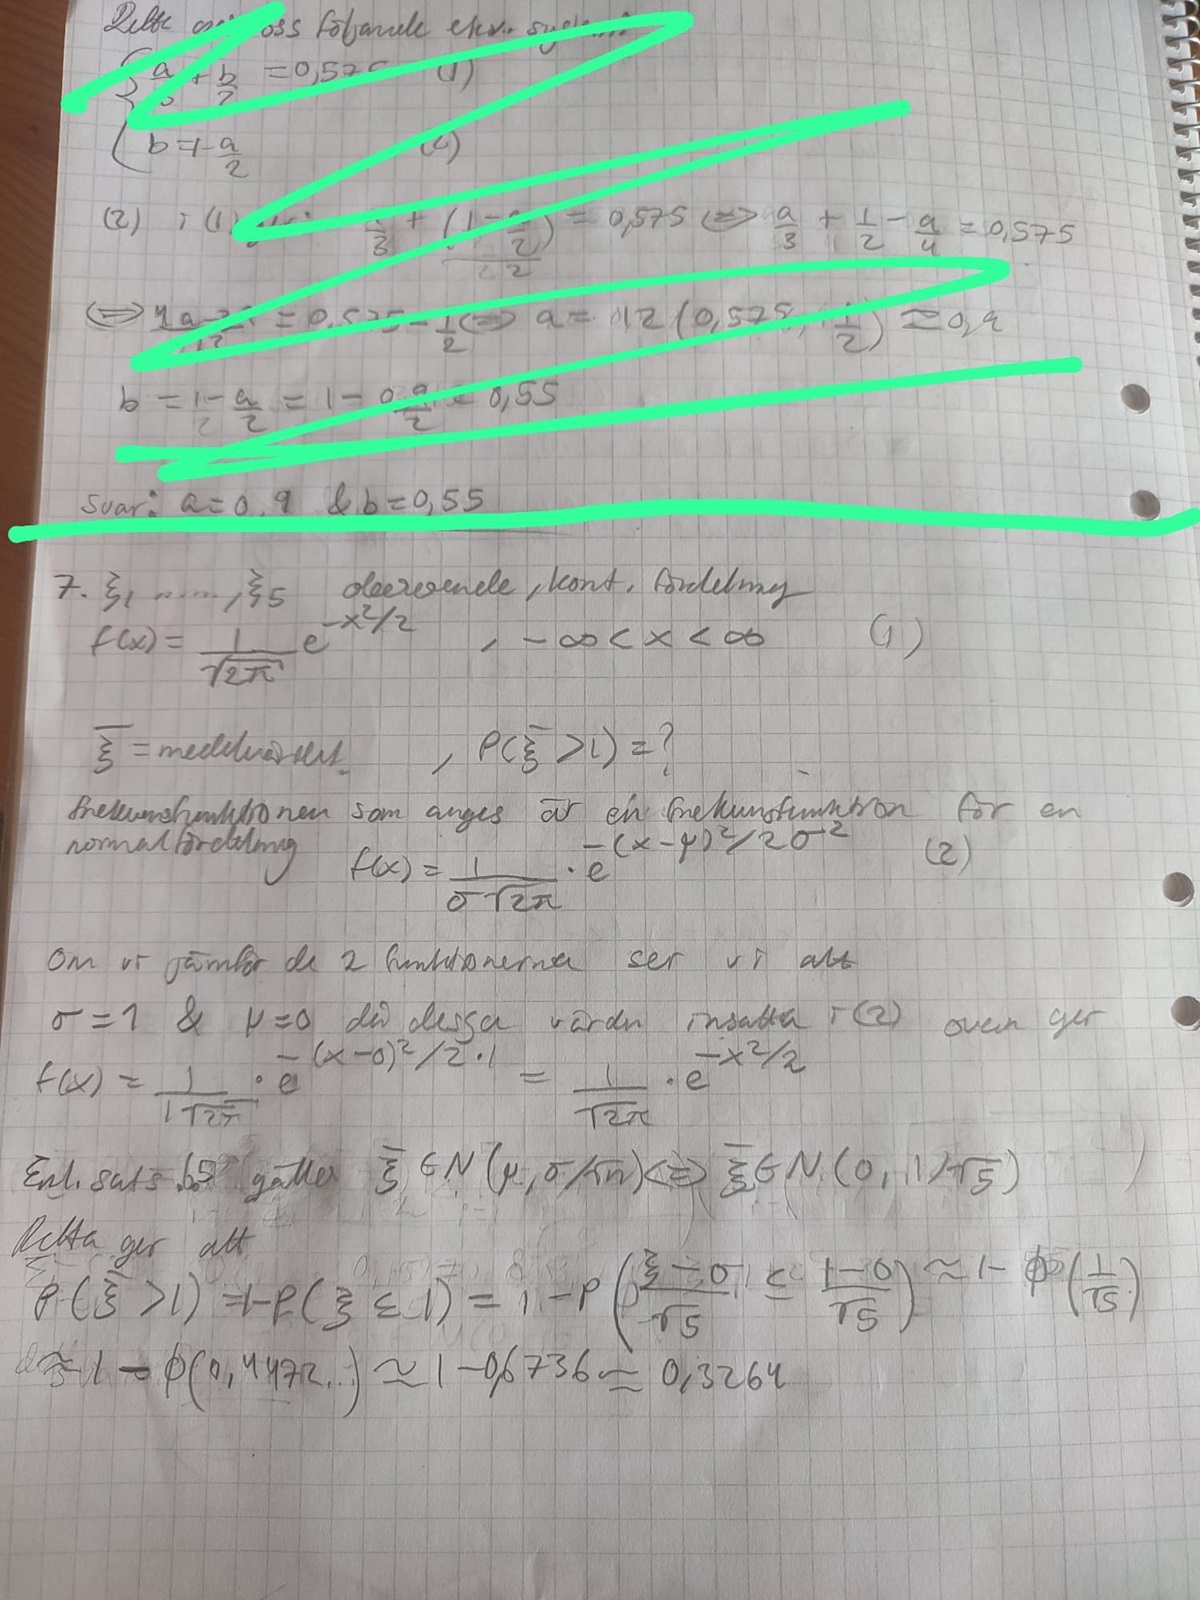 Detta oss följande ekv. system
a/3 + b/2 = 0,575 (1)
b = 1 - a/2 (2)
(2) i (1) + (1 - a/2)/2 = 0,575 <=> a/3 + 1/2 - a/4 = 0,575
<=> = 0,575 - 1/2 <=> a = 12 (0,575 - 1/2) ≈ 0,9
b = 1 - a/2 = 1 - 0,9/2 = 0,55
Svar: a = 0,9 & b = 0,55
7. ξ1 ....., ξ5 oberoende, kont. fördelning
f(x) = 1/√2π e^-x²/2 , -∞ < x < ∞ (1)
ξ̄ = medelvärdet , P(ξ̄ > 1) = ?
frekvensfunktionen som anges är en frekvensfunktion för en
normalfördelning f(x) = 1/σ√2π · e^-(x-μ)²/2σ² (2)
Om vi jämför de 2 funktionerna ser vi att
σ = 1 & μ = 0 då dessa värden insatta i (2) ovan ger
f(x) = 1/1√2π · e^-(x-0)²/2·1 = 1/√2π · e^-x²/2
Enl. sats 6.5 gäller ξ̄ ∈ N(μ, σ/√n) <=> ξ̄ ∈ N(0, 1/√5)
Detta ger att
P(ξ̄ > 1) = 1-P(ξ̄ ≤ 1) = 1 - P((ξ̄ - 0)/√5 ≤ (1-0)/√5) ≈ 1 - ϕ(1/√5)
≈ 1 - ϕ(0,4472..) ≈ 1 - 0,6736 ≈ 0,3264